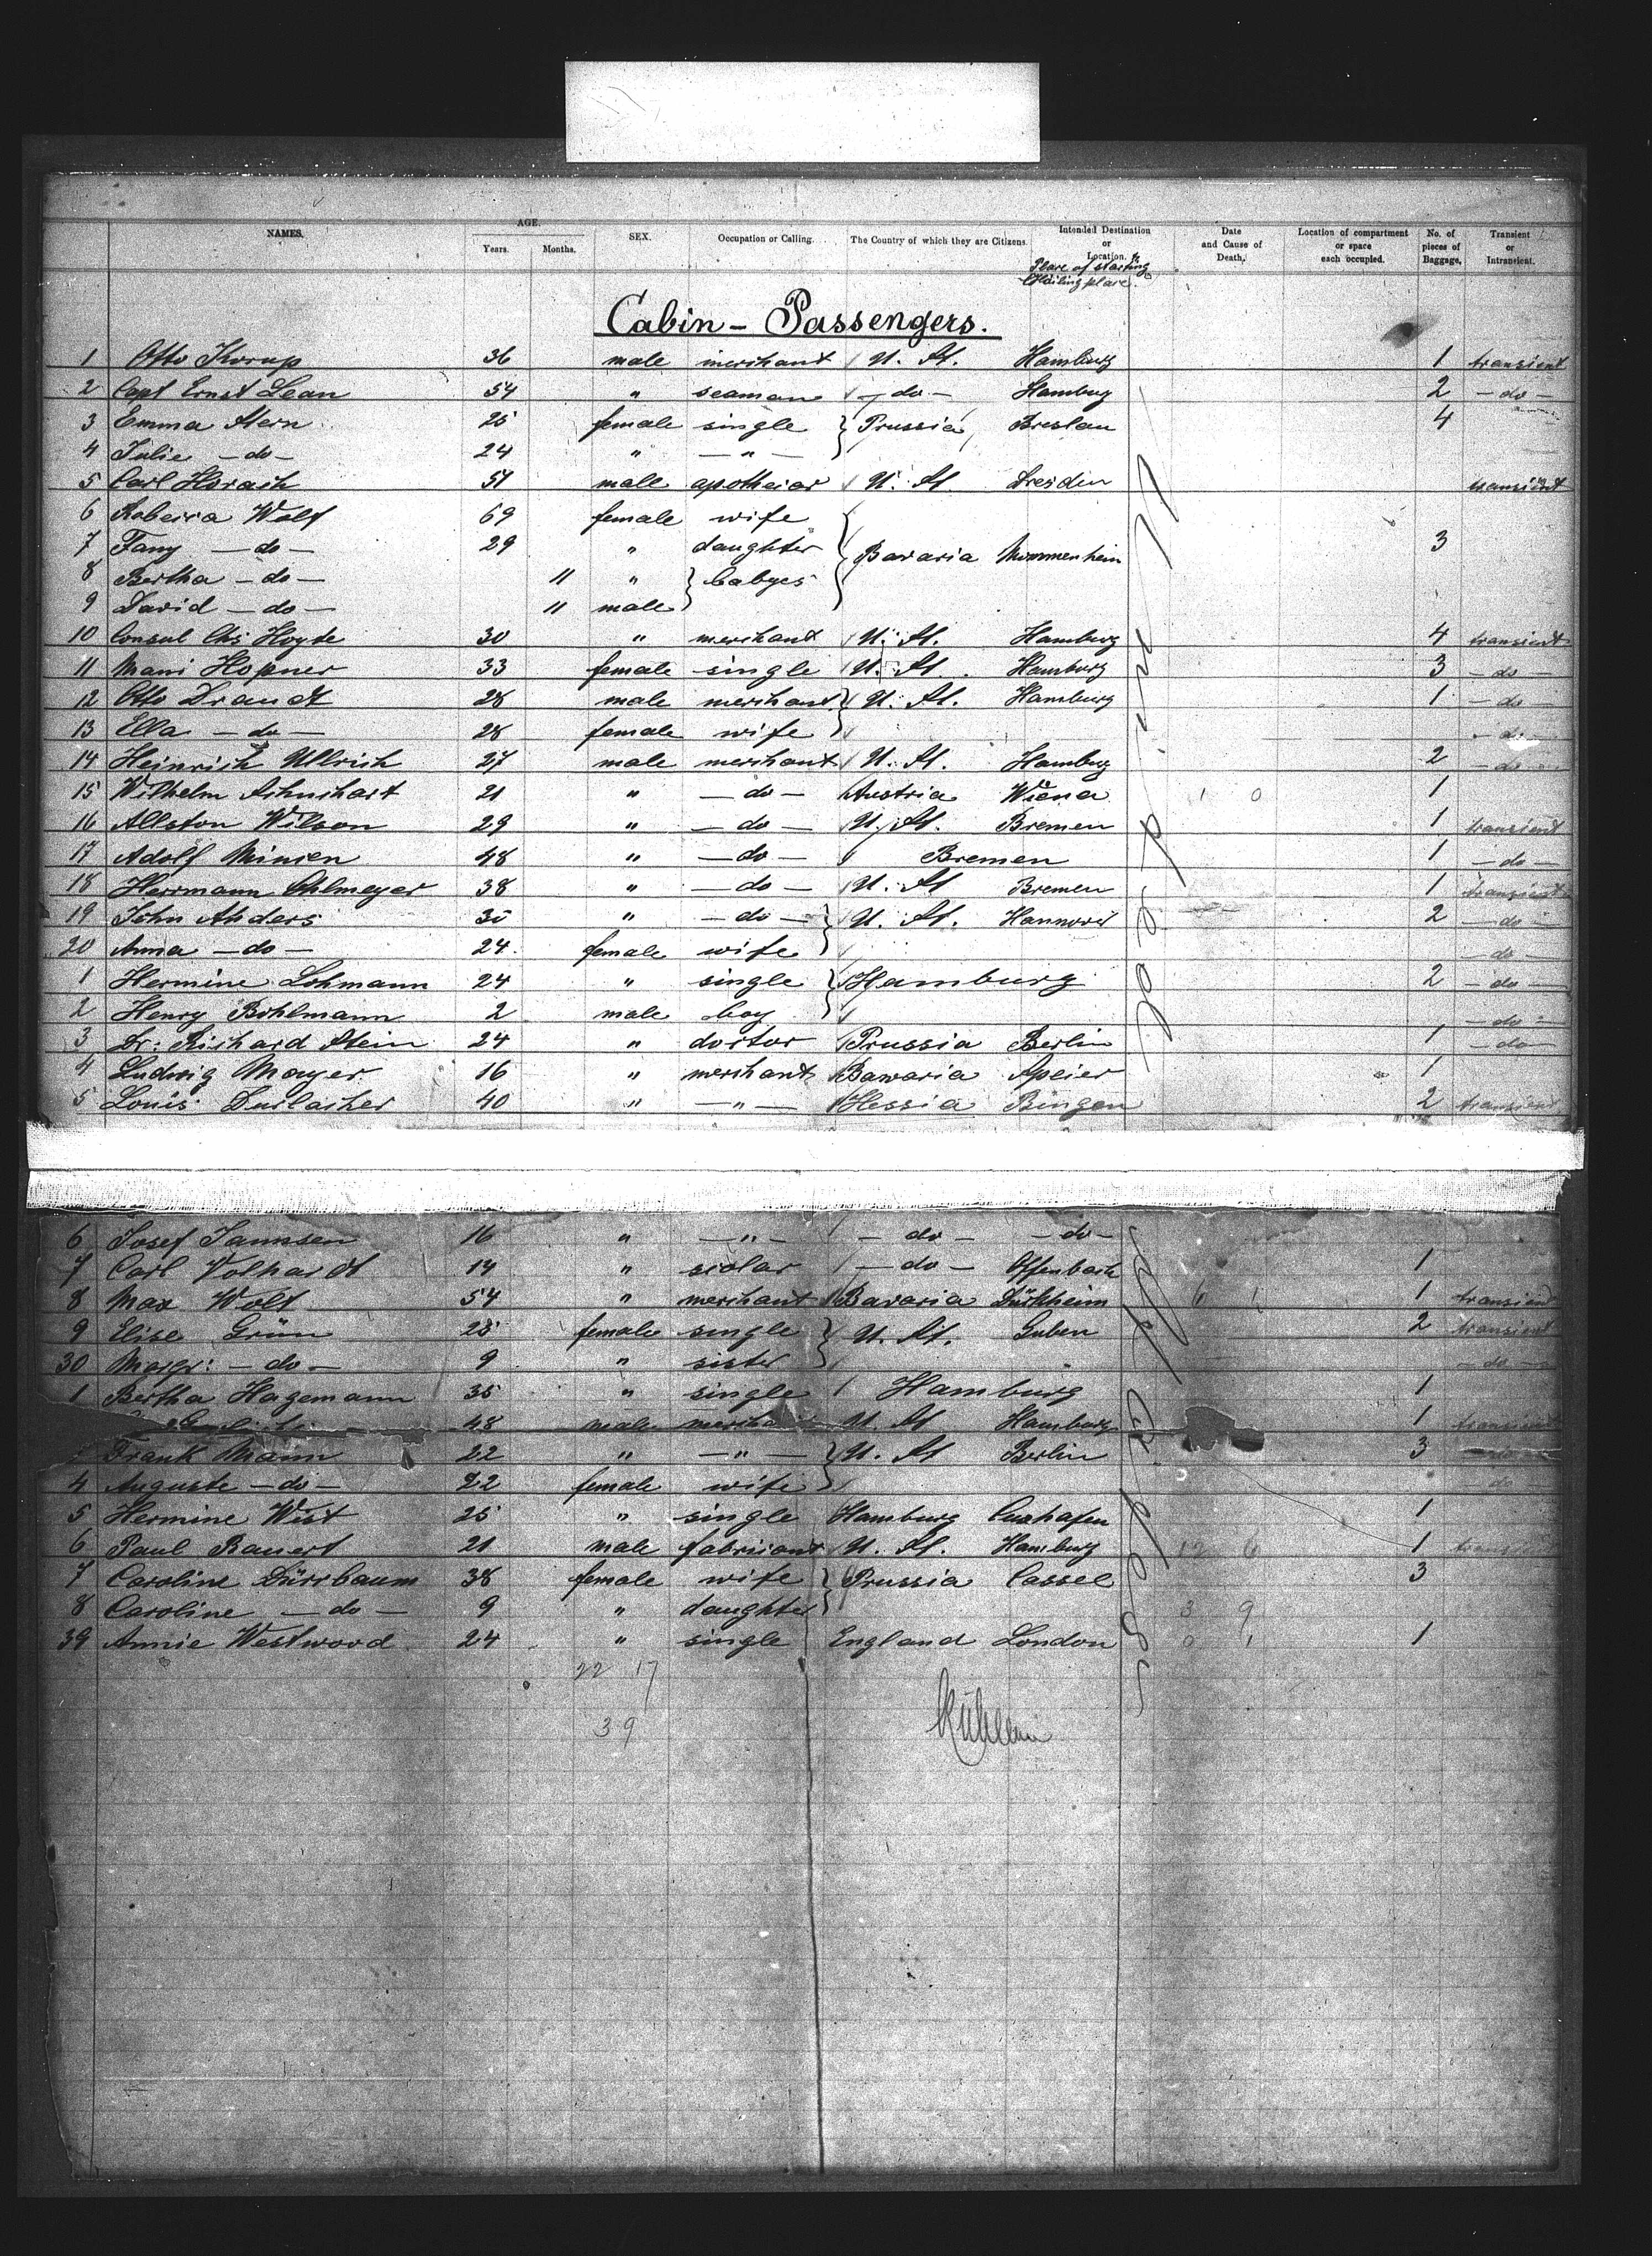 NAMES. AGE. Years. Months. SEX. Occupation or Calling. The Country of which they are Citizens. Intended Destination or Location. Date and Cause of Death. Location of compartment or space each occupied. No. of pieces of Baggage. Transient or Intransient.
Place of starting
Hailing place.
Cabin - Passengers.
1 Otto Korup 36 male merchant U. St. Hamburg 1 transient
2 Capt Ernst Lean 54 " seaman - do - Hamburg 2 - do -
3 Emma Stern 25 female single Prussia Breslau 4
4 Julie - do - 24 " - " -
5 Carl Horach 51 male U. St Dresden transient
6 Wolf 69 female wife
7 Fany - do - 29 " daughter Bavaria Mommenheim 3
8 Bertha - do - 11 " babyes
9 David - do - 11 male
10 Consul Chs Hoyde 30 " merchant U. St. Hamburg 4 transient
11 Mani Hopner 33 female single U. St. Hamburg 3 - do -
12 Otto Drandt 28 male merchant U. St. Hamburg 1 - do -
13 Ella - do - 28 female wife - do -
14 Heinrich Ullrich 27 male merchant U. St. Hamburg 2 - do -
15 Wilhelm 21 " - do - Austria Wiena 1 0 1
16 Allston Wilson 29 " - do - U. St. Bremen 1 transient
17 Adolf 48 " - do - Bremen 1 - do -
18 Herrmann Ohlmeyer 38 " - do - U. St Bremen 1 transient
19 John Ahders 30 " - do - U. St. Hannover 2 - do -
20 Anna - do - 24 female wife - do -
1 Hermine Lohmann 24 " single Hamburg 2 - do -
2 Henry Bohlmann 2 male boy - do -
3 Dr: Richard Stein 24 " doctor Prussia Berlin 1 - do -
4 Ludwig Mayer 16 " merchant Bavaria Speier 1
5 Louis Durlacher 40 " - " - Hessia Bingen 2 transient
6 Josef Jannsen 16 " - " - - do - - do -
7 Carl Volhardt 14 " scolar - do - Offenbach 1
8 Max Wolf 54 " merchant Bavaria Dürkheim 6 1 1 transient
9 Elise Grün 28 female single U. St. Guben 2 transient
30 Margr: - do - 9 " sister - do -
1 Bertha Hagemann 35 " single Hamburg 1
48 male merchant U. St Hamburg 1 transient
Frank Mann 22 " - " - U. St Berlin 3 - do -
4 Auguste - do - 22 female wife - do -
5 Hermine Wist 25 " single Hamburg Cuxhafen 1
6 Paul Rauert 21 male fabricant U. St. Hamburg 12 6 1 transient
7 Caroline Dürrbaum 38 female wife Prussia Cassel 3
8 Caroline - do - 9 " daughter 3 9
39 Annie Westwood 24 " single England London 0 1 1
22 17
39